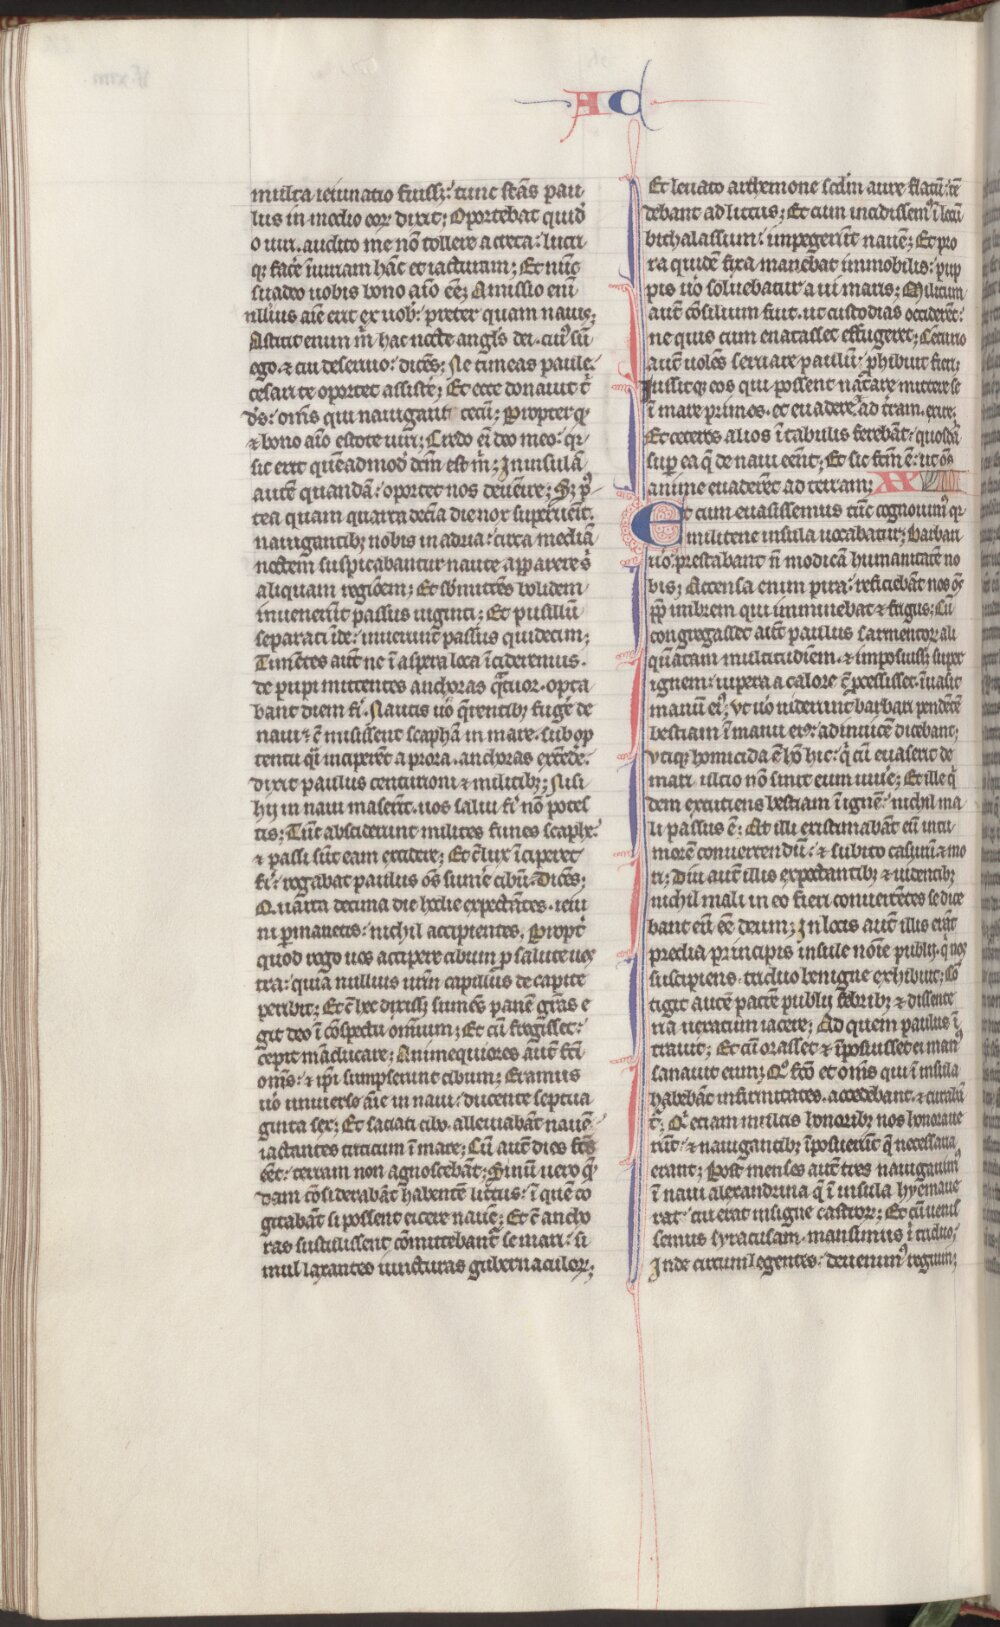 AC
multa ieiunatio fuiss&: tunc stās pau
lus in medio eoꝝ dixit; Oportebat quidē
o uiri. audito me nō tollere a creta: lucri
qꝫ facē iniuriam hāc et iacturam; Et nūc
suadeo uobis bono aīo eēꝫ Amissio enī
nllius aīe erit ex uob̄: preter quam nauis;
Astitit enim m̄ hac nocte angl̄s dei. cui᷒ sū
ego. & cui deseruio: dicēs; Ne timeas paule.
cesari te oportet assistē; Et ecce donauit t̄
ds̄: om̄s qui nauigant tecū; Propter qd̄
& bono aīo estote uiri; Credo eī deo meo: qr
sic erit quēadmod̄ dcm̄ est m̄; In insulā
autē quandā: oportet nos deuenire; Sꝫ p᷒
tea quam quarta decīa die noꝝ superueīt.
nauigantibꝫ nobis in adria: circa mediā
noctem suspicabantur naute apparere s̄
aliquam regiōem; Et sb̄mittētes bolidem
inuenerūt passus uiginti; Et pusillū
separati īde: inuenerunt passus quidecim;
Timētes aut̄ ne ī aspera loca īcideremus.
de pupi mittentes anchoras q̄tuor. opta
bant diem fī. Nautis uō q̄rentibꝫ fugē de
naui & c̄ misissent scaphā in mare. sub op
tentu q̄i inciperēt a prora. anchoras extēdē:
dixit paulus centurioni & militibꝫ; Nisi
hij in naui māserīt. uos salui fi nō potes
tis; Tūc absciderunt milites funes scaphe:
& passi sūt eam excidere; Et c̄ lux īciperet
fi: rogabat paulus oēs sumē cibū. Dicēs;
Quarta decima die hodie expectātes. ieiu
ni ꝑmanetis: nichil accipientes. Propt̄
quod rogo uos accipere cibum ꝓ salute ues
tra: quia nullius urm̄ capillus de capite
peribit; Et c̄ hec dixiss& sumēs panē grās e
git deo ī cōspectu omnium; Et cū fregisset:
cepit māducare; Animequiores aut̄ fc̄i
om̄s: & ip̄i sumpserunt cibum; Eramus
uō uniuerse aīe in naui: ducente septua
ginta sex; Et saciati cibo. alleuiabāt nauē
iactantes triticum ī mare; Cū aut̄ dies fc̄s
eēt: terram non agnoscebāt; Sinū uero q̄
dam cōsiderabāt habentē littus: ī quē co
gitabāt si possent eicere nauē; Et c̄ ancho
ras sustulissent cōmittebant se mari: si
mul laxantes iuncturas gubernaculoꝝ;
Et leuato arthemone scdm aure flatū: tē
debant ad littus; Et cum incidissem᷒ ī locū
bithalassum: impegerūt nauē; Et pro
ra quidē fixa manebat immobilis: pup
pis uō soluebatur a ui maris; Militum
aut̄ cōsilium fuit. ut custodias occiderēt:
ne quis cum enatasset effugeret; Centurio
aut̄ uolēs seruare paulū: ꝓhibuit fieri;
Iussitqꝫ eos qui possent natare mittere se
ī mare primos. et euadere ad t̄ram. exire.
Et ceteros alios ī tabulis ferebāt: quosdā
suꝑ ea q̄ de naui eēnt; Et sic fcm̄ ē: ut oēs
anime euaderēt ad terram;
Et cum euasissemus tūc cognouim᷒ qr
militene insula uocabatur; Barbari
uō prestabant n̄ modicā humanitatē no
bis; Accensa enim pira: reficiebāt nos oēs
ꝓp imbrem qui imminebat & frigus; Cū
congregasset aut̄ paulus sarmentoꝝ ali
quātam multitudīem. & imposuiss& super
ignem: uipera a calore c̄ ꝓcessisset. īuasit
manū ei᷒; Vt uō uiderunt barbari pendētē
bestiam ī manu ei᷒: adinuicē dicebant;
Vtiqꝫ homicida ē hō hic: q̄ cū euaserit de
mari ultio nō sinit eum uiuē; Et ille q̄
dem excutiens bestiam ī ignē: nichil ma
li passus ē; At illi existimabāt eū in tu
morē conuertendū: & subito casurū & mo
ri; Diu aut̄ illis expectantibꝫ & uidentibꝫ
nichil mali in eo fieri conuertētes se dice
bant eū eē deum; In locis aut̄ illis erāt
predia principis insule noīe publij. q nos
suscipiens. triduo benigne exhibuit; Cō
tigit autē patrē publij febribꝫ & dissente
ria uexatum iacere; Ad quem paulus ī
trauit; Et cū orasset & īposuisset ei man᷒
sanauit eum; Qo fc̄o et om̄s qui ī insula
habebāt infirmitates. accedebant. & curabāt
r̄; Qi etiam multis honoribꝫ nos honoraue
rūt: & nauigantibꝫ īposuerūt q̄ necessaria
erant; Post menses aut̄ tres nauigauim᷒
ī naui alexandrina q̄ ī insula hyemaue
rat. cui erat insigne castroꝝ; Et cū uenis
semus syracusam. mansimus ī triduo;
Inde circumlegentes: deuenim᷒ regium;